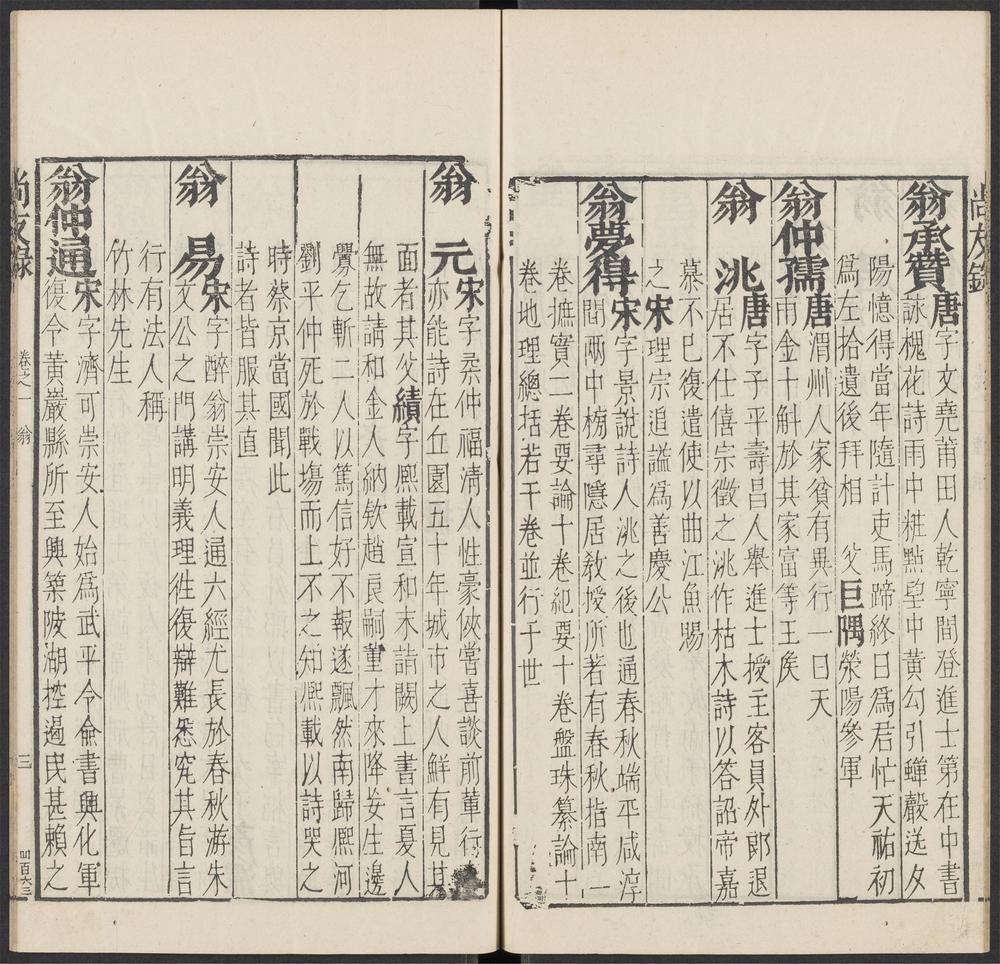 尚友錄
翁承贊唐字文堯莆田人乾寧間登進士第在中書
詠槐花詩雨中粧點望中黃勾引蟬聲送夕
陽憶得當年隨計吏馬蹄終日為君忙天祐初
為左拾遺後拜相 父巨隅滎陽參軍
翁仲孺唐渭州人家貧有異行一日天
雨金十斛於其家富等王侯
翁 洮唐字子平壽昌人舉進士授主客員外郎退
居不仕僖宗徵之洮作枯木詩以答詔帝嘉
慕不已復遣使以曲江魚賜
之宋理宗追謚為善慶公
翁夢得宋字景說詩人洮之後也通春秋端平咸淳
間兩中榜尋隱居教授所著有春秋指南一
卷摭實二卷要論十卷紀要十卷盤珠纂論十
卷地理總括若干卷並行于世
翁 元宋字柔仲福清人性豪俠嘗喜談前輩行
亦能詩在丘園五十年城市之人鮮有見其
面者其父績字熈載宣和末請闕上書言憂人
無故請和金人納欵趙良嗣董才來降妄生邊
釁乞斬二人以篤信好不報遂飄然南歸熈河
劉平仲死於戰場而上不之知熈載以詩哭之
時蔡京當國聞此
詩者皆服其直
翁 易宋字醉翁崇安人通六經尤長於春秋游朱
文公之門講明義理徃復辯難悉究其旨言
行有法人稱
竹林先生
翁仲通宋字濟可崇安人始為武平令僉書興化軍
復令黃巖縣所至興築陂湖控過民甚賴之
尚友錄 卷之一 翁 三 凹百六三